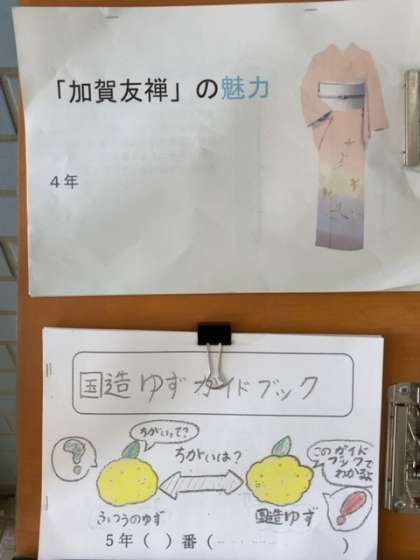 「加賀友禅」の魅力
4年
国造ゆずガイドブック
ちがいって?
ちがいは?
このガイド
ブックで
わかるよ
ふつうのゆず
国造ゆず
5年( )番( )